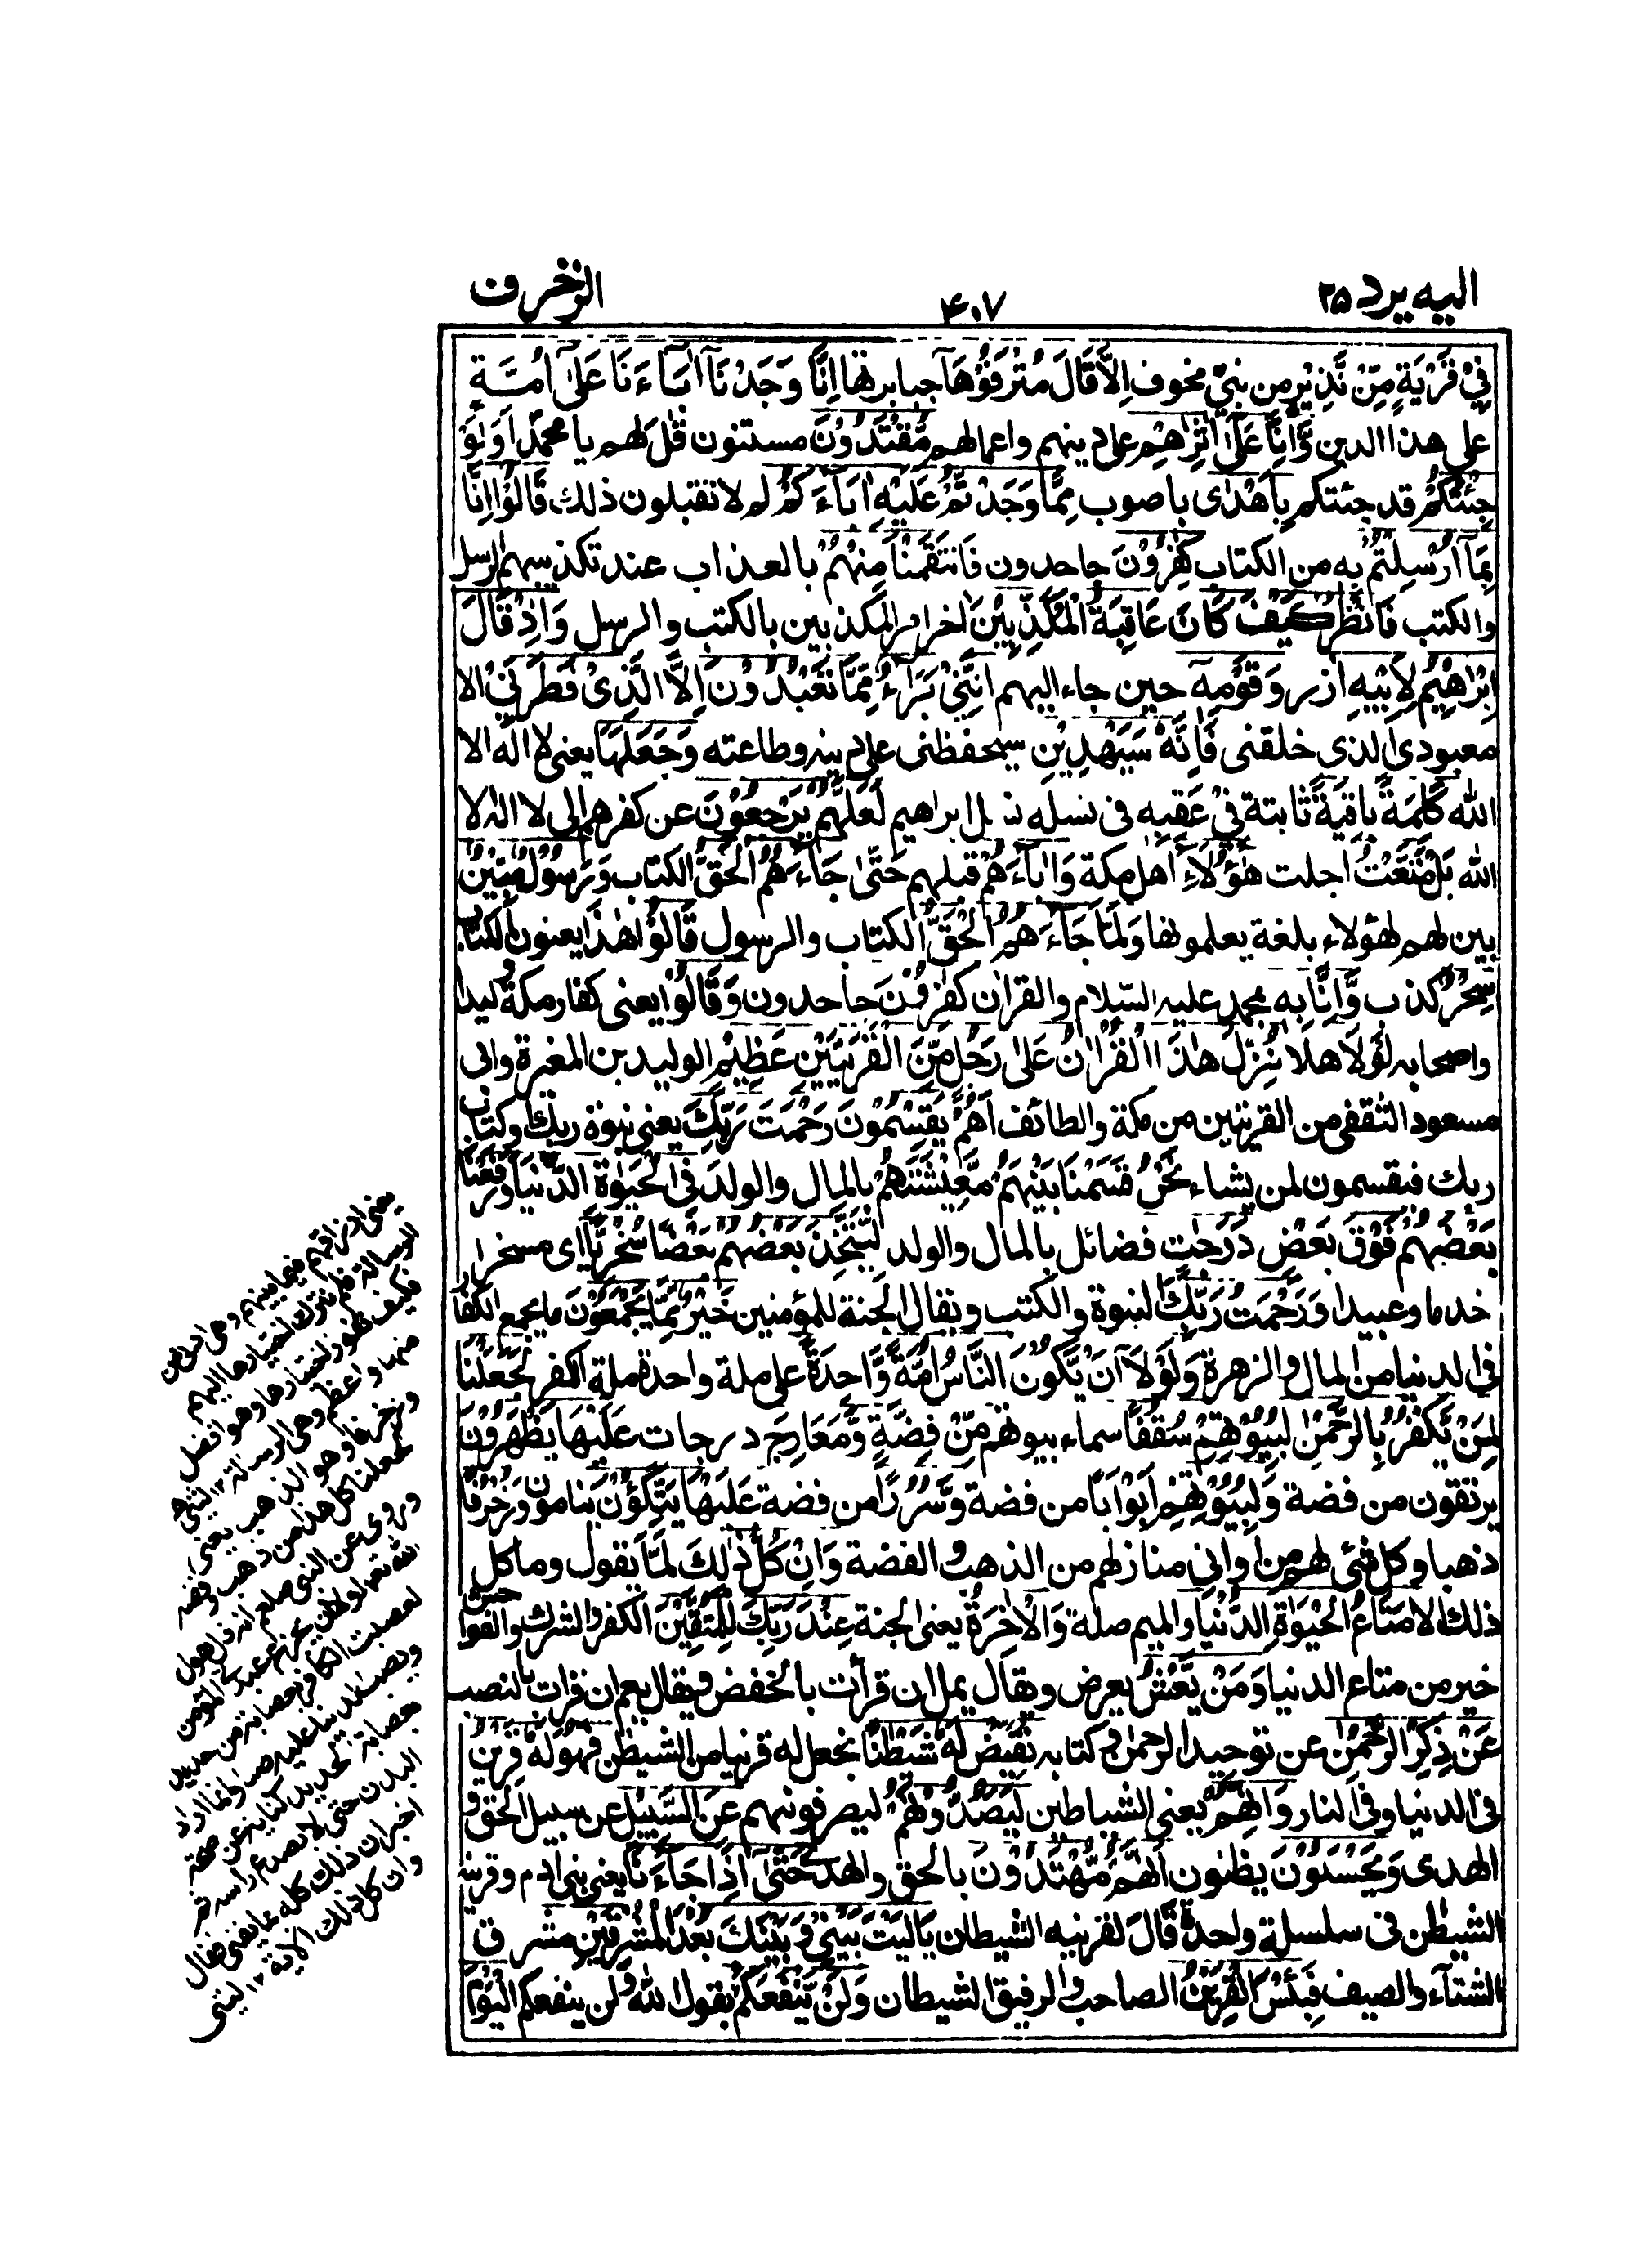 اليه يرد ٢٥
٤٠٧
الزخرف
فِيْ قَرْيَةٍ مِّنْ نَّذِيْرٍ من نبيّ مخوف اِلَّا قَالَ مُتْرَفُوْهَآ جبابرتها اِنَّا وَجَدْنَآ اٰبَآءَنَا عَلٰٓى اُمَّةٍ
على هذا الدين وَّاِنَّا عَلٰٓى اٰثٰرِهِمْ على دينهم واعمالهم مُّقْتَدُوْنَ مستنون قٰلَ لهم يا محمد اَوَلَوْ
جِئْتُكُمْ قد جئتكم بِاَهْدٰى باصوب مِمَّا وَجَدْتُّمْ عَلَيْهِ اٰبَآءَكُمْ لم لا تقبلون ذلك قَالُوْٓا اِنَّا
بِمَآ اُرْسِلْتُمْ بِه من الكتاب كٰفِرُوْنَ جاحدون فَانْتَقَمْنَا مِنْهُمْ بالعذاب عند تكذيبهم الرسل
والكتب فَانْظُرْ كَيْفَ كَانَ عَاقِبَةُ الْمُكَذِّبِيْنَ اخر امر المكذبين بالكتب والرسل وَاِذْ قَالَ
اِبْرٰهِيْمُ لِاَبِيْهِ ازر وَقَوْمِهٓ حين جاء اليهم اِنَّنِيْ بَرَآءٌ مِّمَّا تَعْبُدُوْنَ اِلَّا الَّذِيْ فَطَرَنِيْ الا
معبودي الذى خلقنى فَاِنَّهٗ سَيَهْدِيْنِ سيحفظنى على دينه وطاعته وَجَعَلَهَا يعنى لا اله الا
الله كَلِمَةً بَاقِيَةً ثابتة فِيْ عَقِبِه فى نسله نسل ابراهيم لَعَلَّهُمْ يَرْجِعُوْنَ عن كفرهم الى لا اله الا
الله بَلْ مَتَّعْتُ اجلت هٰٓؤُلَآءِ اهل مكة وَاٰبَآءَهُمْ قبلهم حَتّٰى جَآءَهُمُ الْحَقُّ الكتاب وَرَسُوْلٌ مُّبِيْنٌ
يبين لهم لهؤلاء بلغة يعلمونها وَلَمَّا جَآءَهُمُ الْحَقُّ الكتاب والرسول قَالُوْا هٰذَا يعنون الكتاب
سِحْرٌ كذب وَّاِنَّا بِه بمحمد عليه السلام والقران كٰفِرُوْنَ جاحدون وَقَالُوْا يعنى كفار مكة وليدا
واصحابه لَوْلَا هلا نُزِّلَ هٰذَا الْقُرْاٰنُ عَلٰى رَجُلٍ مِّنَ الْقَرْيَتَيْنِ عَظِيْمٍ الوليد بن المغيرة وابى
مسعود الثقفى من القريتين من مكة والطائف اَهُمْ يَقْسِمُوْنَ رَحْمَتَ رَبِّكَ يعنى نبوة ربك وكتاب
ربك فيقسمون لمن يشاء نَحْنُ قَسَمْنَا بَيْنَهُمْ مَّعِيْشَتَهُمْ بالمال والولد فِى الْحَيٰوةِ الدُّنْيَا وَرَفَعْنَا
بَعْضَهُمْ فَوْقَ بَعْضٍ دَرَجٰتٍ فضائل بالمال والولد لِّيَتَّخِذَ بَعْضُهُمْ بَعْضًا سُخْرِيًّا اى مسخرا
خدما وعبيدا وَرَحْمَتُ رَبِّكَ النبوة والكتب ويقال الجنة للمؤمنين خَيْرٌ مِّمَّا يَجْمَعُوْنَ مما يجمع الكفار
فى الدنيا من المال والزهرة وَلَوْلَآ اَنْ يَّكُوْنَ النَّاسُ اُمَّةً وَّاحِدَةً على ملة واحدة ملة الكفر لَجَعَلْنَا
لِمَنْ يَّكْفُرُ بِالرَّحْمٰنِ لِبُيُوْتِهِمْ سُقُفًا سماء بيوتهم مِّنْ فِضَّةٍ وَّمَعَارِجَ درجات عَلَيْهَا يَظْهَرُوْنَ
يرتقون من فضة وَلِبُيُوْتِهِمْ اَبْوَابًا من فضة وَّسُرُرًا من فضة عَلَيْهَا يَتَّكِؤُنَ ينامون وَزُخْرُفًا
ذهبا وكل شئ لهم من اوانى منازلهم من الذهب والفضة وَاِنْ كُلُّ ذٰلِكَ لَمَّا يقول وما كل
ذلك الا مَتَاعُ الْحَيٰوةِ الدُّنْيَا والميم صلة وَالْاٰخِرَةُ يعنى الجنة عِنْدَ رَبِّكَ لِلْمُتَّقِيْنَ الكفر والشرك والفواحش
خير من متاع الدنيا وَمَنْ يَّعْشُ يعرض ويقال يمل ان قرأت بالخفض ويقال يعم ان قرات بالنصب
عَنْ ذِكْرِ الرَّحْمٰنِ عن توحيد الرحمن وكتابه نُقَيِّضْ لَهٗ شَيْطٰنًا نجعل له قرنيا من الشيطن فَهُوَ لَهٗ قَرِيْنٌ
فى الدنيا وفى النار وَاِنَّهُمْ يعنى الشياطين لَيَصُدُّوْنَهُمْ ليصرفونهم عَنِ السَّبِيْلِ عن سبيل الحق و
الهدى وَيَحْسَبُوْنَ يظنون اَنَّهُمْ مُّهْتَدُوْنَ بالحق والهدى حَتّٰىٓ اِذَا جَآءَنَا يعنى بنى ادم وقرينه
الشيطن فى سلسلة واحدة قَالَ لقرينه الشيطان يَالَيْتَ بَيْنِيْ وَبَيْنَكَ بُعْدَ الْمَشْرِقَيْنِ مشرق
الشتآء والصيف فَبِئْسَ الْقَرِيْنُ الصاحب والرفيق الشيطان وَلَنْ يَّنْفَعَكُمُ يقول الله ولن ينفعكم الْيَوْمَ
يعنى ارزاقهم فيما بينهم وهى ادنى من
الرسالة فلم نترك اختيارها اليهم
فكيف نفوز اختيار ما هو افضل
منها واعظم وهى الرسالة ١٢
وزخرفا وهو الذهب يعنى
لجعلنا كل هذا من ذهب وفضه
وروى عن النبى صلعم انه قال يقول
الله تعالى لولا ان يجزع عبدى المؤمن
لعصبت الكافر بعصابة من حديد
ولصببت الدنيا عليه صبا وانما اراد
بعصابة الحديد كناية عن صحة
البدن حتى لا يصدع راسه ثم
اخبر ان ذلك كله مما يفنى فقال
وان كل ذلك الآية ١٢